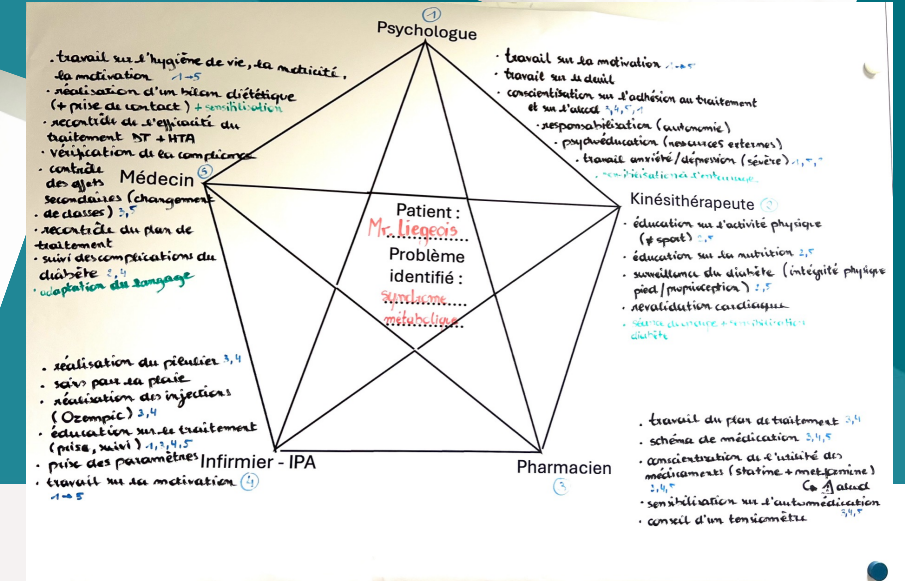 ①
Psychologue
. travail sur l'hygiène de vie, la motricité,
la motivation 1→5
. réalisation d'un bilan diététique
(+ prise de contact) + sensibilisation
. recontrôle de l'efficacité du
traitement DT + HTA
. vérification de la compliance
. contrôle
des effets
secondaires (changement
de classes) 3,5
. recontrôle du plan de
traitement
. suivi des complications du
diabète 2,4
. adaptation du langage
Médecin ⑤
. travail sur la motivation 1→5
. travail sur le deuil
. conscientisation sur l'adhésion au traitement
et sur l'alcool 3,4,5,1
. responsabilisation (autonomie)
. psychoéducation (ressources externes)
. travail anxiété/dépression (sévère)
. sensibilisation à l'entourage
Kinésithérapeute ②
. éducation sur l'activité physique
(≠ sport) 2,5
. éducation sur la nutrition 2,5
. surveillance du diabète (intégrité physique
pied/proprioception) 2,5
. revalidation cardiaque
. + sensibilisation
diabète
Patient :
Mr. Liegeois
Problème
identifié :
syndrome
métabolique
. réalisation du pilulier 3,4
. soins pour la plaie
. réalisation des injections
(Ozempic) 3,4
. éducation sur le traitement
(prise, suivi) 1,3,4,5
. prise des paramètres
. travail sur la motivation
1→5
Infirmier - IPA
④
Pharmacien
③
. travail du plan de traitement 3,4
. schéma de médication 3,4,5
. conscientisation de l'utilité des
médicaments (statine + metformine)
3,4,5 ↳ ⚠ alcool
. sensibilisation sur l'automédication
. conseil d'un tensiomètre 3,4,5